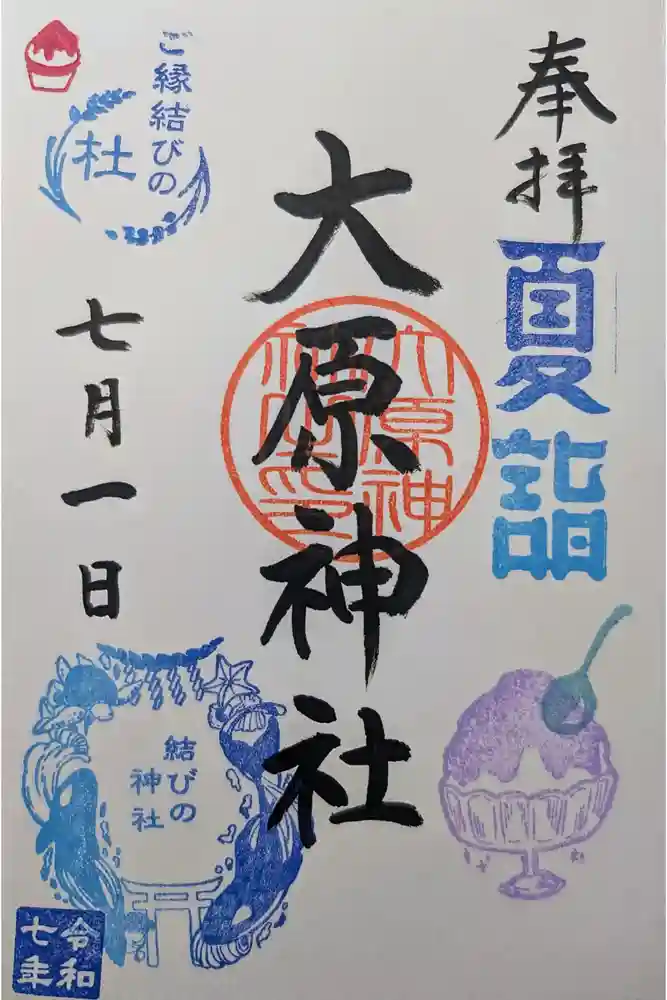 奉拝
夏詣
大原神社
大原神
社之印
ご縁結びの
杜
七月一日
結びの
神社
令和
七年